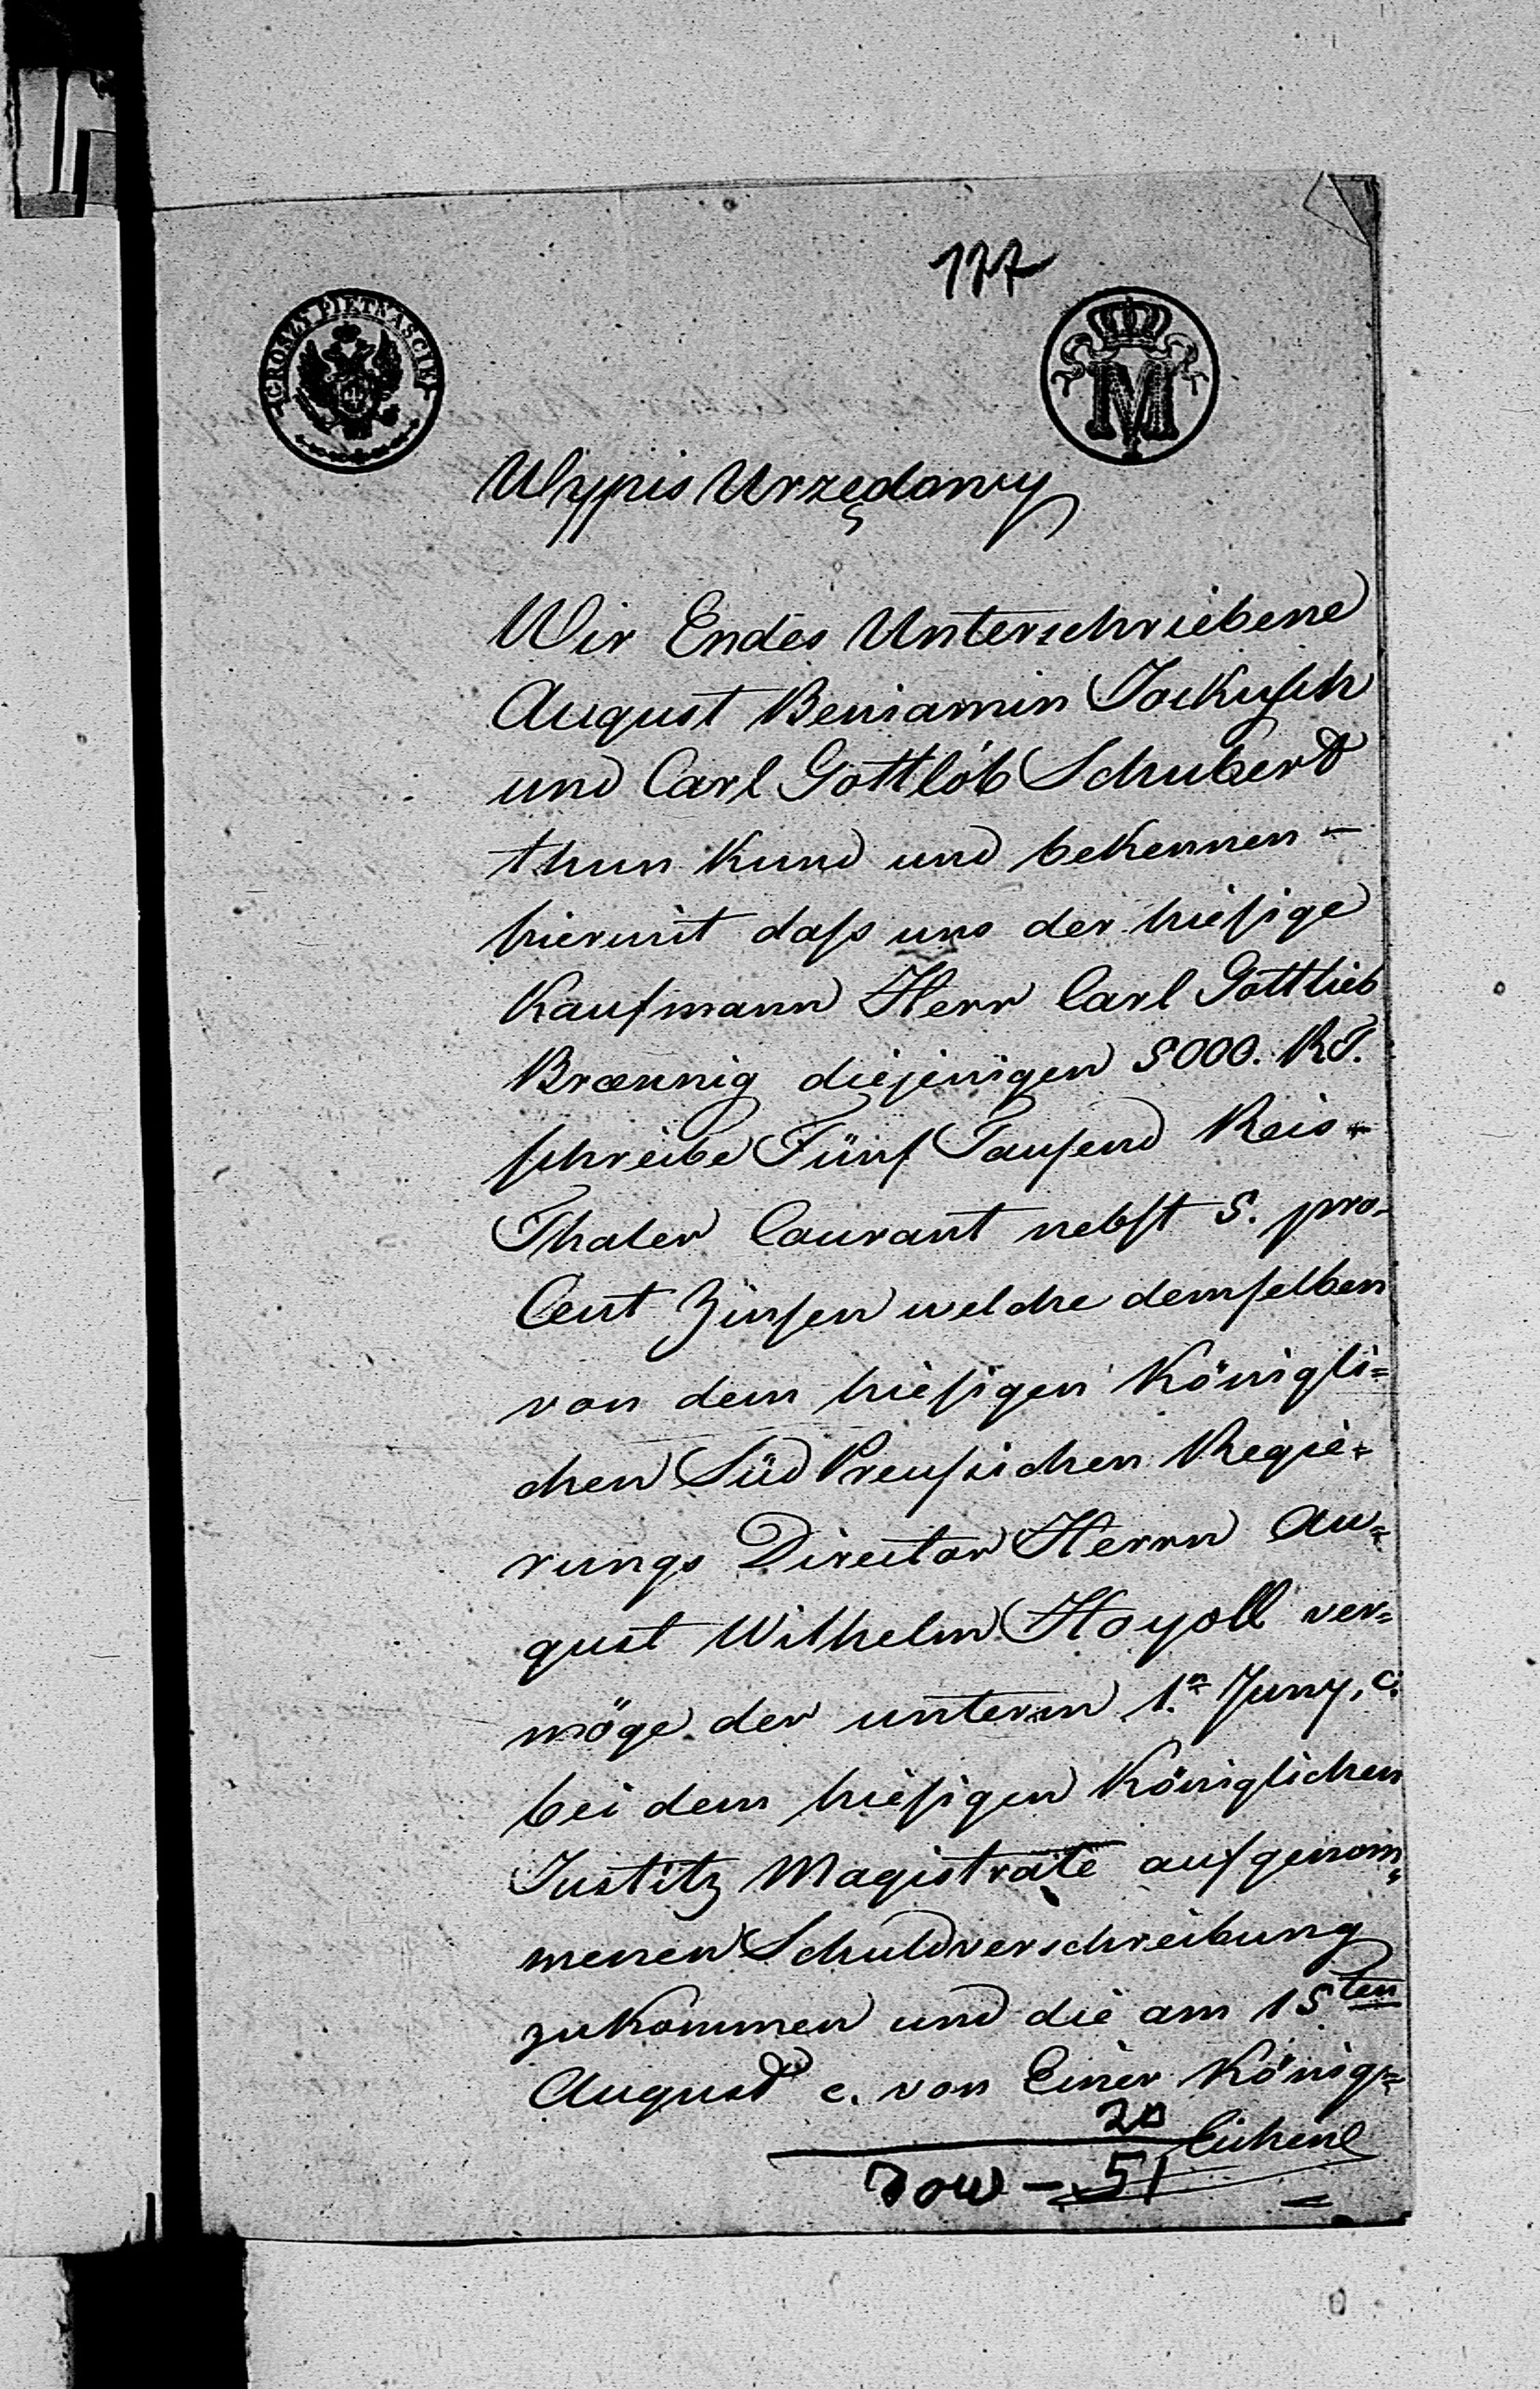 177
GROSZY PIĘTNAŚCIE
M
Wypis Urzędowy
Wir Endes Unterschriebene
August Beniamin Jockusch
und Carl Gottlob Schubert
thun Kund und bekennen –
hiermit daſs uns der hieſige
Kaufmann Herr Carl Gottlieb
Brœnnig diejenigen 5000. RT.
ſchreibe Fünf Tauſend Reis-
Thaler Courant nebſt 5. pro-
Cent Zinſen welche demſelben
von dem hieſigen Königli=
chen Süd Preuſsichen Regie=
rungs Director Herrn Au=
gust Wilhelm Hoyoll ver=
möge der unterm 1.n Juny, c.
bei dem hieſigen Königlichen
Justitz Magistrate aufgenom=
menen Schuldverschreibung
zukommen und die am 15ten
August c. von Einer Königs=
20
51